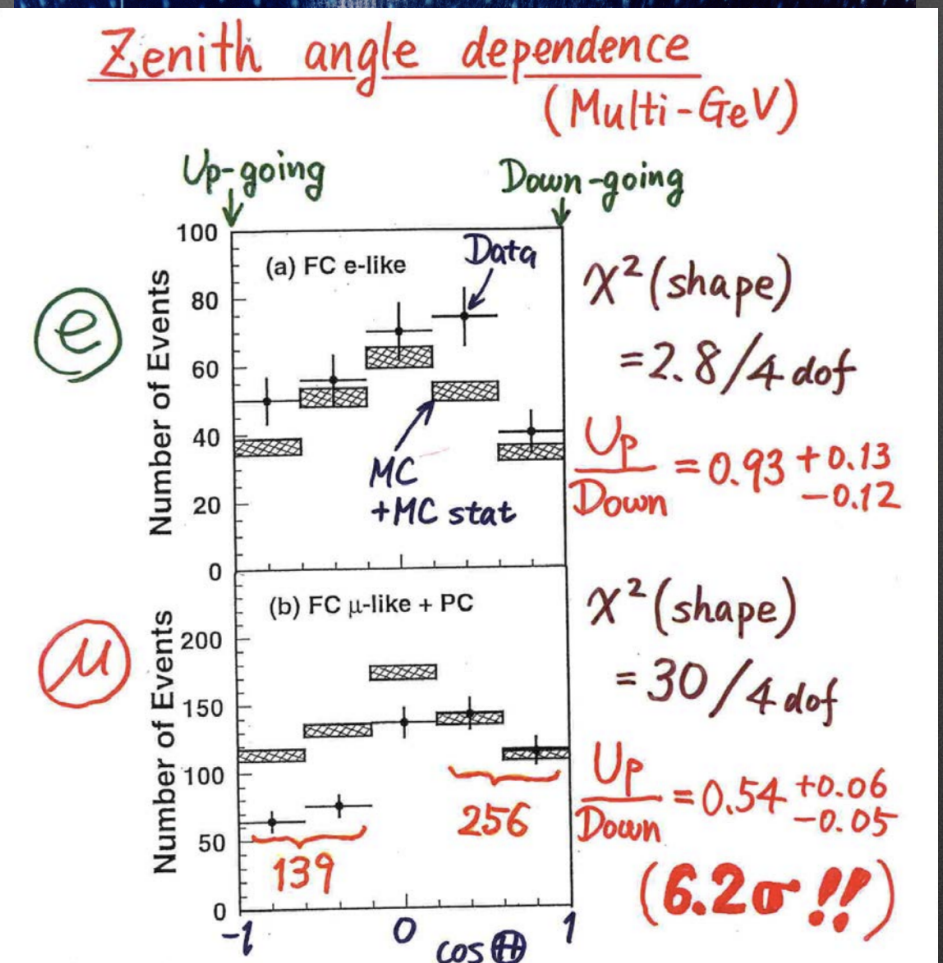 Zenith angle dependence
(Multi-GeV)
Up-going
Down-going
100
80
60
40
20
0
Number of Events
(a) FC e-like
Data
MC
+MC stat
e
χ²(shape)
=2.8/4 dof
Up/Down = 0.93 +0.13 -0.12
200
150
100
50
0
Number of Events
(b) FC μ-like + PC
139
256
μ
χ²(shape)
= 30/4 dof
Up/Down = 0.54 +0.06 -0.05
(6.2σ!!)
-1
0
1
cos Θ